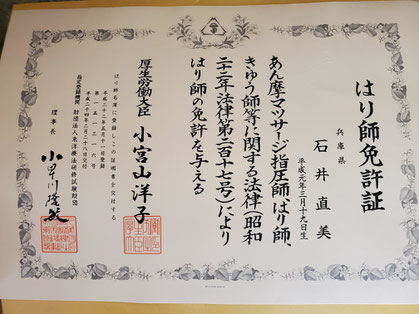 はり師免許証
兵庫県
石井直美
平成元年三月十九日生
あん摩マツサージ指圧師、はり師、
きゆう師等に関する法律(昭和
二十二年法律第二百十七号)により
はり師の免許を与える
厚生労働大臣 小宮山洋子
はり師名簿に登録しこの証明書を交付する
指定登録機関 財団法人東洋療法研修試験財団
理事長